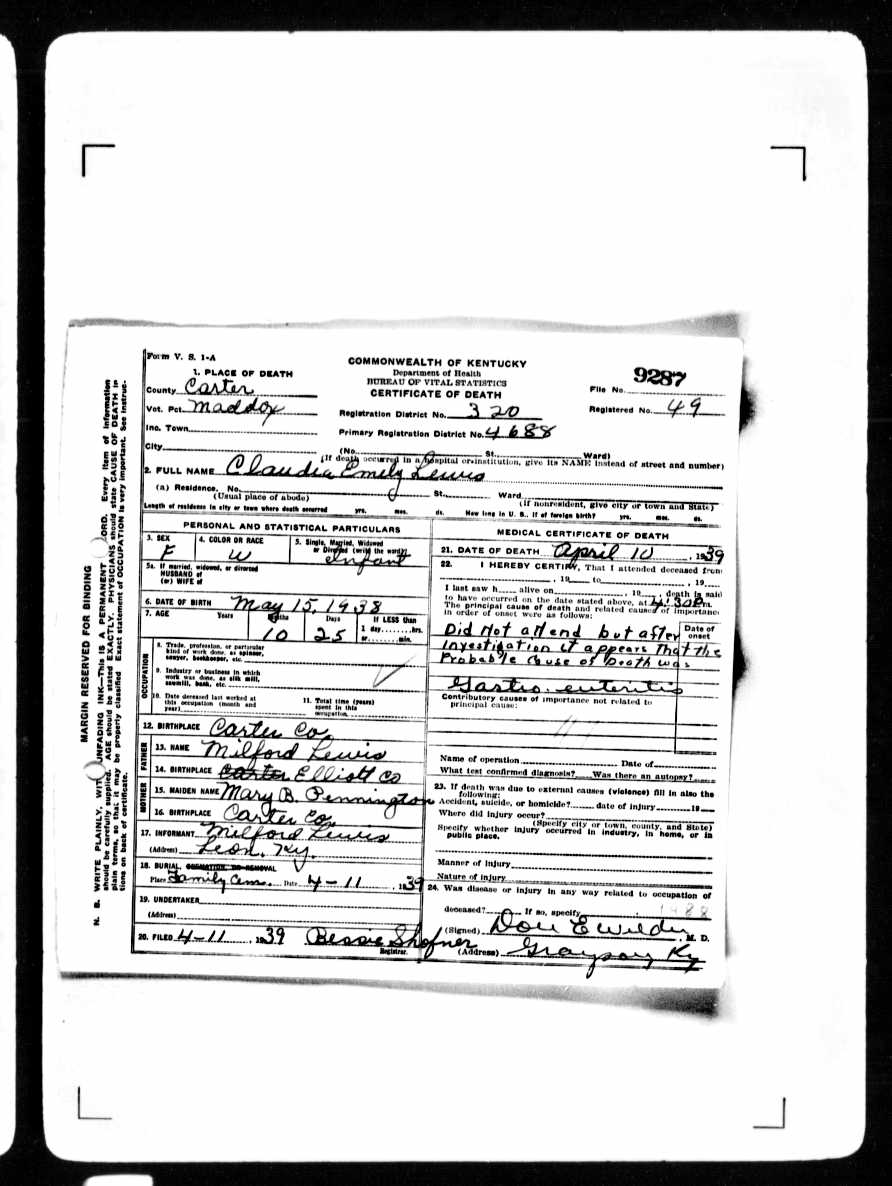 Form V. S. 1-A
1. PLACE OF DEATH
County Carter
Vot. Pct. Maddox
Inc. Town
City
COMMONWEALTH OF KENTUCKY
Department of Health
BUREAU OF VITAL STATISTICS
CERTIFICATE OF DEATH
Registration District No. 320
Primary Registration District No. 4688
File No. 9287
Registered No. 49
(No. St. Ward)
(If death occurred in a hospital or institution, give its NAME instead of street and number)
2. FULL NAME Claudia Emily Lewis
(a) Residence. No. St. Ward
(Usual place of abode) (If nonresident, give city or town and State)
Length of residence in city or town where death occurred yrs. mos. ds. How long in U. S., if of foreign birth? yrs. mos. ds.
PERSONAL AND STATISTICAL PARTICULARS
3. SEX F
4. COLOR OR RACE W
5. Single, Married, Widowed
or Divorced (write the word)
Infant
5a. If married, widowed, or divorced
HUSBAND of
(or) WIFE of
6. DATE OF BIRTH May 15, 1938
7. AGE Years Months Days If LESS than
10 25 1 day hrs.
or min.
OCCUPATION
8. Trade, profession, or particular
kind of work done, as spinner,
sawyer, bookkeeper, etc.
9. Industry or business in which
work was done, as silk mill,
sawmill, bank, etc.
10. Date deceased last worked at
this occupation (month and
year)
11. Total time (years)
spent in this
occupation
12. BIRTHPLACE Carter Co.
FATHER
13. NAME Milford Lewis
14. BIRTHPLACE Carter Elliott Co
MOTHER
15. MAIDEN NAME Mary B. Pennington
16. BIRTHPLACE Carter Co.
17. INFORMANT Milford Lewis
(Address) Leon, Ky.
18. BURIAL, CREMATION OR REMOVAL
Place Family Cem. Date 4-11, 1939
19. UNDERTAKER
(Address)
20. FILED 4-11, 1939 Bessie Shofner
Registrar.
MEDICAL CERTIFICATE OF DEATH
21. DATE OF DEATH April 10, 1939
22. I HEREBY CERTIFY, That I attended deceased from
, 19 to , 19
I last saw h alive on , 19 , death is said
to have occurred on the date stated above, at 4:30P m.
The principal cause of death and related causes of importance
in order of onset were as follows:
Date of
onset
Did Not attend but after
Investigation it appears that the
Probable Cause of Death was
Gastro-enteritis
Contributory causes of importance not related to
principal cause:
Name of operation Date of
What test confirmed diagnosis? Was there an autopsy?
23. If death was due to external causes (violence) fill in also the
following:
Accident, suicide, or homicide? date of injury 19
Where did injury occur?
(Specify city or town, county, and State)
Specify whether injury occurred in industry, in home, or in
public place.
Manner of injury
Nature of injury
24. Was disease or injury in any way related to occupation of
deceased? If so, specify
(Signed) Don E Wilder, M. D.
(Address) Grayson, Ky
MARGIN RESERVED FOR BINDING
N. B. WRITE PLAINLY, WITH UNFADING INK—THIS IS A PERMANENT RECORD. Every item of information
should be carefully supplied. AGE should be stated EXACTLY. PHYSICIANS should state CAUSE OF DEATH in
plain terms, so that it may be properly classified. Exact statement of OCCUPATION is very important. See instruc-
tions on back of certificate.